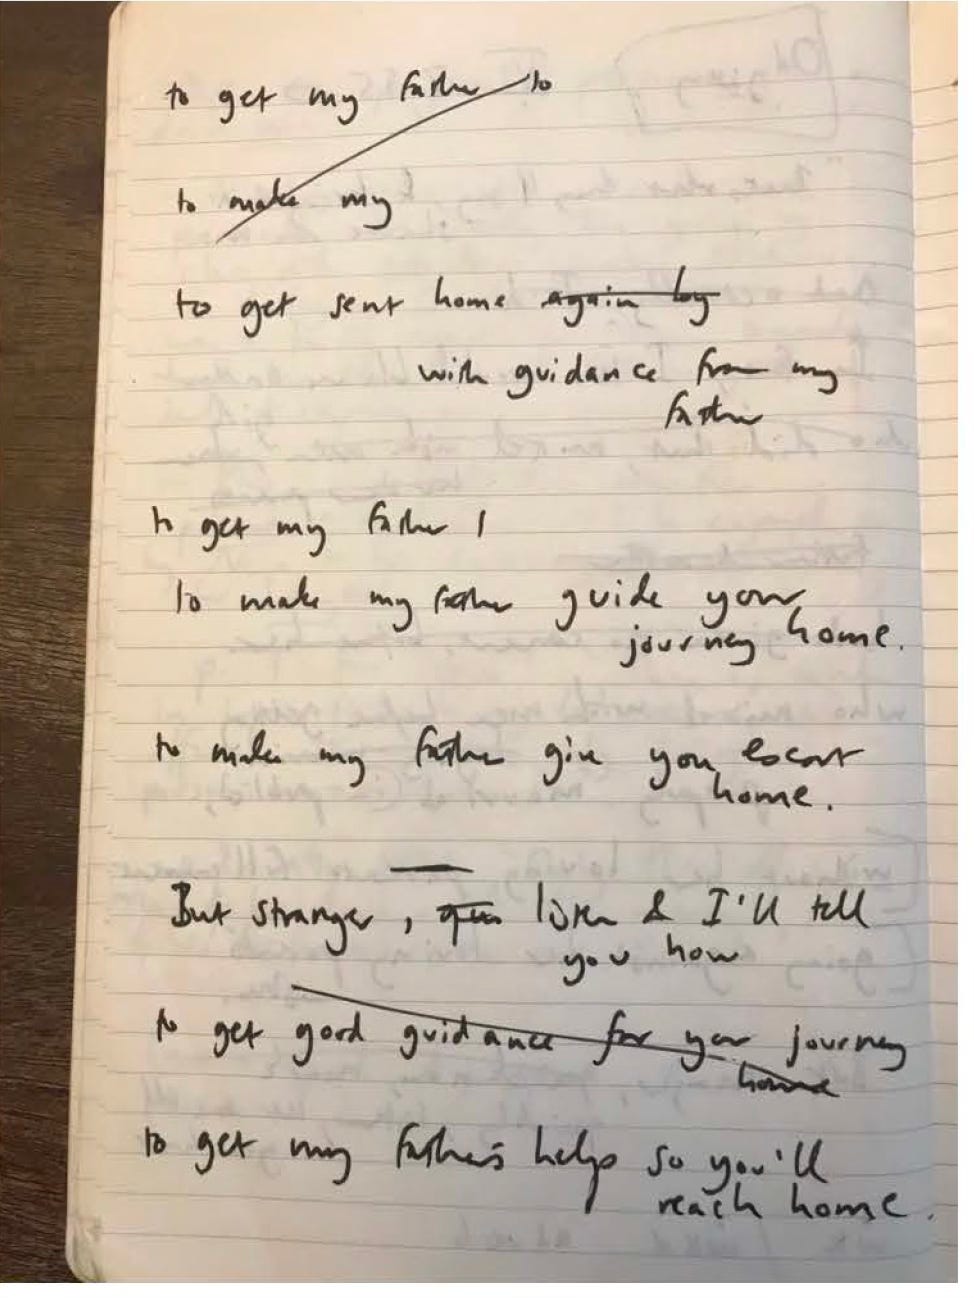 to get my father to
to make my
to get sent home again by
with guidance from my
father
to get my father
to make my father guide your
journey home.
to make my father give you escort
home.
But stranger, listen & I'll tell
you how
to get good guidance for your journey
home
to get my father's help so you'll
reach home.